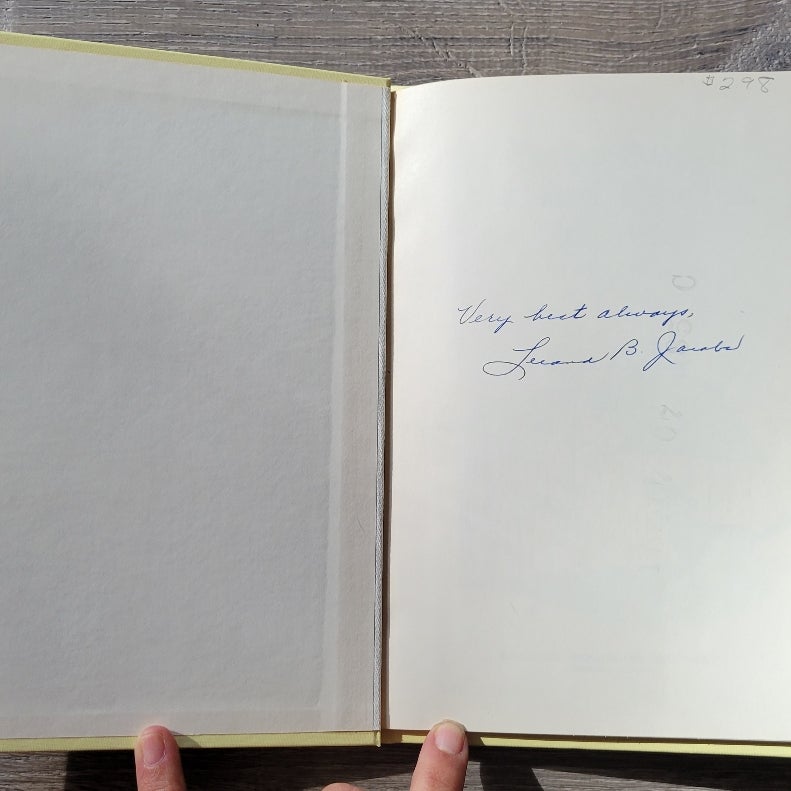 $298
Very best always,
Leland B. Jacobs